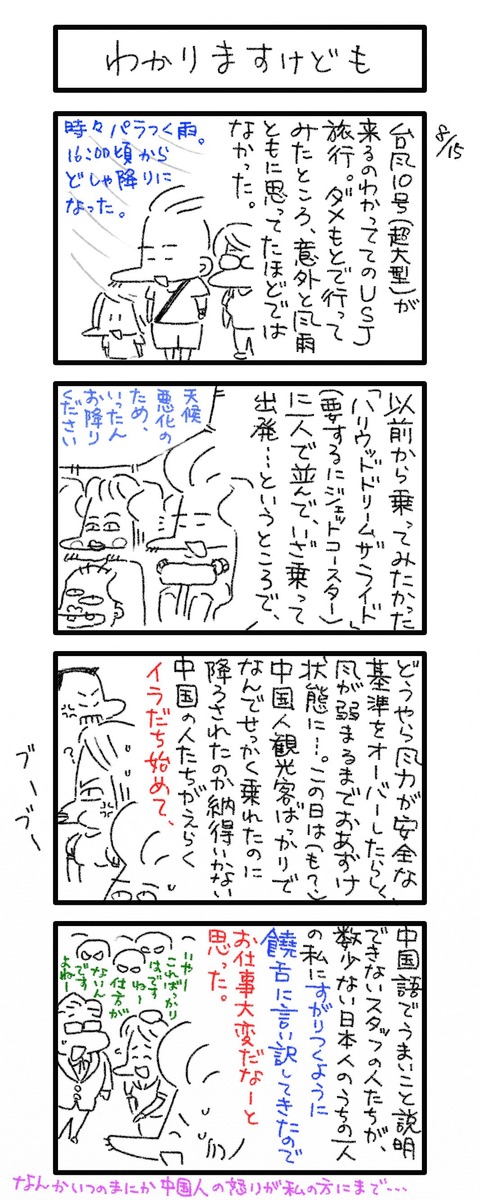 わかりますけども
8/15
台風10号(超大型)が
来るのわかっててのUSJ
旅行。ダメもとで行って
みたところ、意外と風雨
ともに思ってたほどでは
なかった。
時々パラつく雨。
16:00頃から
どしゃ降りに
なった。
以前から乗ってみたかった
「ハリウッドドリームザライド」
(要するにジェットコースター)
に一人で並んで、いざ乗って
出発…というところで、
天候
悪化の
ため、
いったん
お降り
ください
どうやら風力が安全な
基準をオーバーしたらしく、
風が弱まるまでおあずけ
状態に…。この日は(も?)
中国人観光客ばっかりで
なんでせっかく乗れたのに
降ろされたのか納得いかない
中国の人たちがえらく
イラだち始めて、
ブーブー
中国語でうまいこと説明
できないスタッフの人たちが、
数少ない日本人のうちの一人
の私にすがりつくように
饒舌に言い訳してきたので
お仕事大変だなーと
思った。
いやー
こればっかり
はですねー
仕方が
ないん
ですよねー
なんかいつのまにか中国人の怒りが私の方にまで…